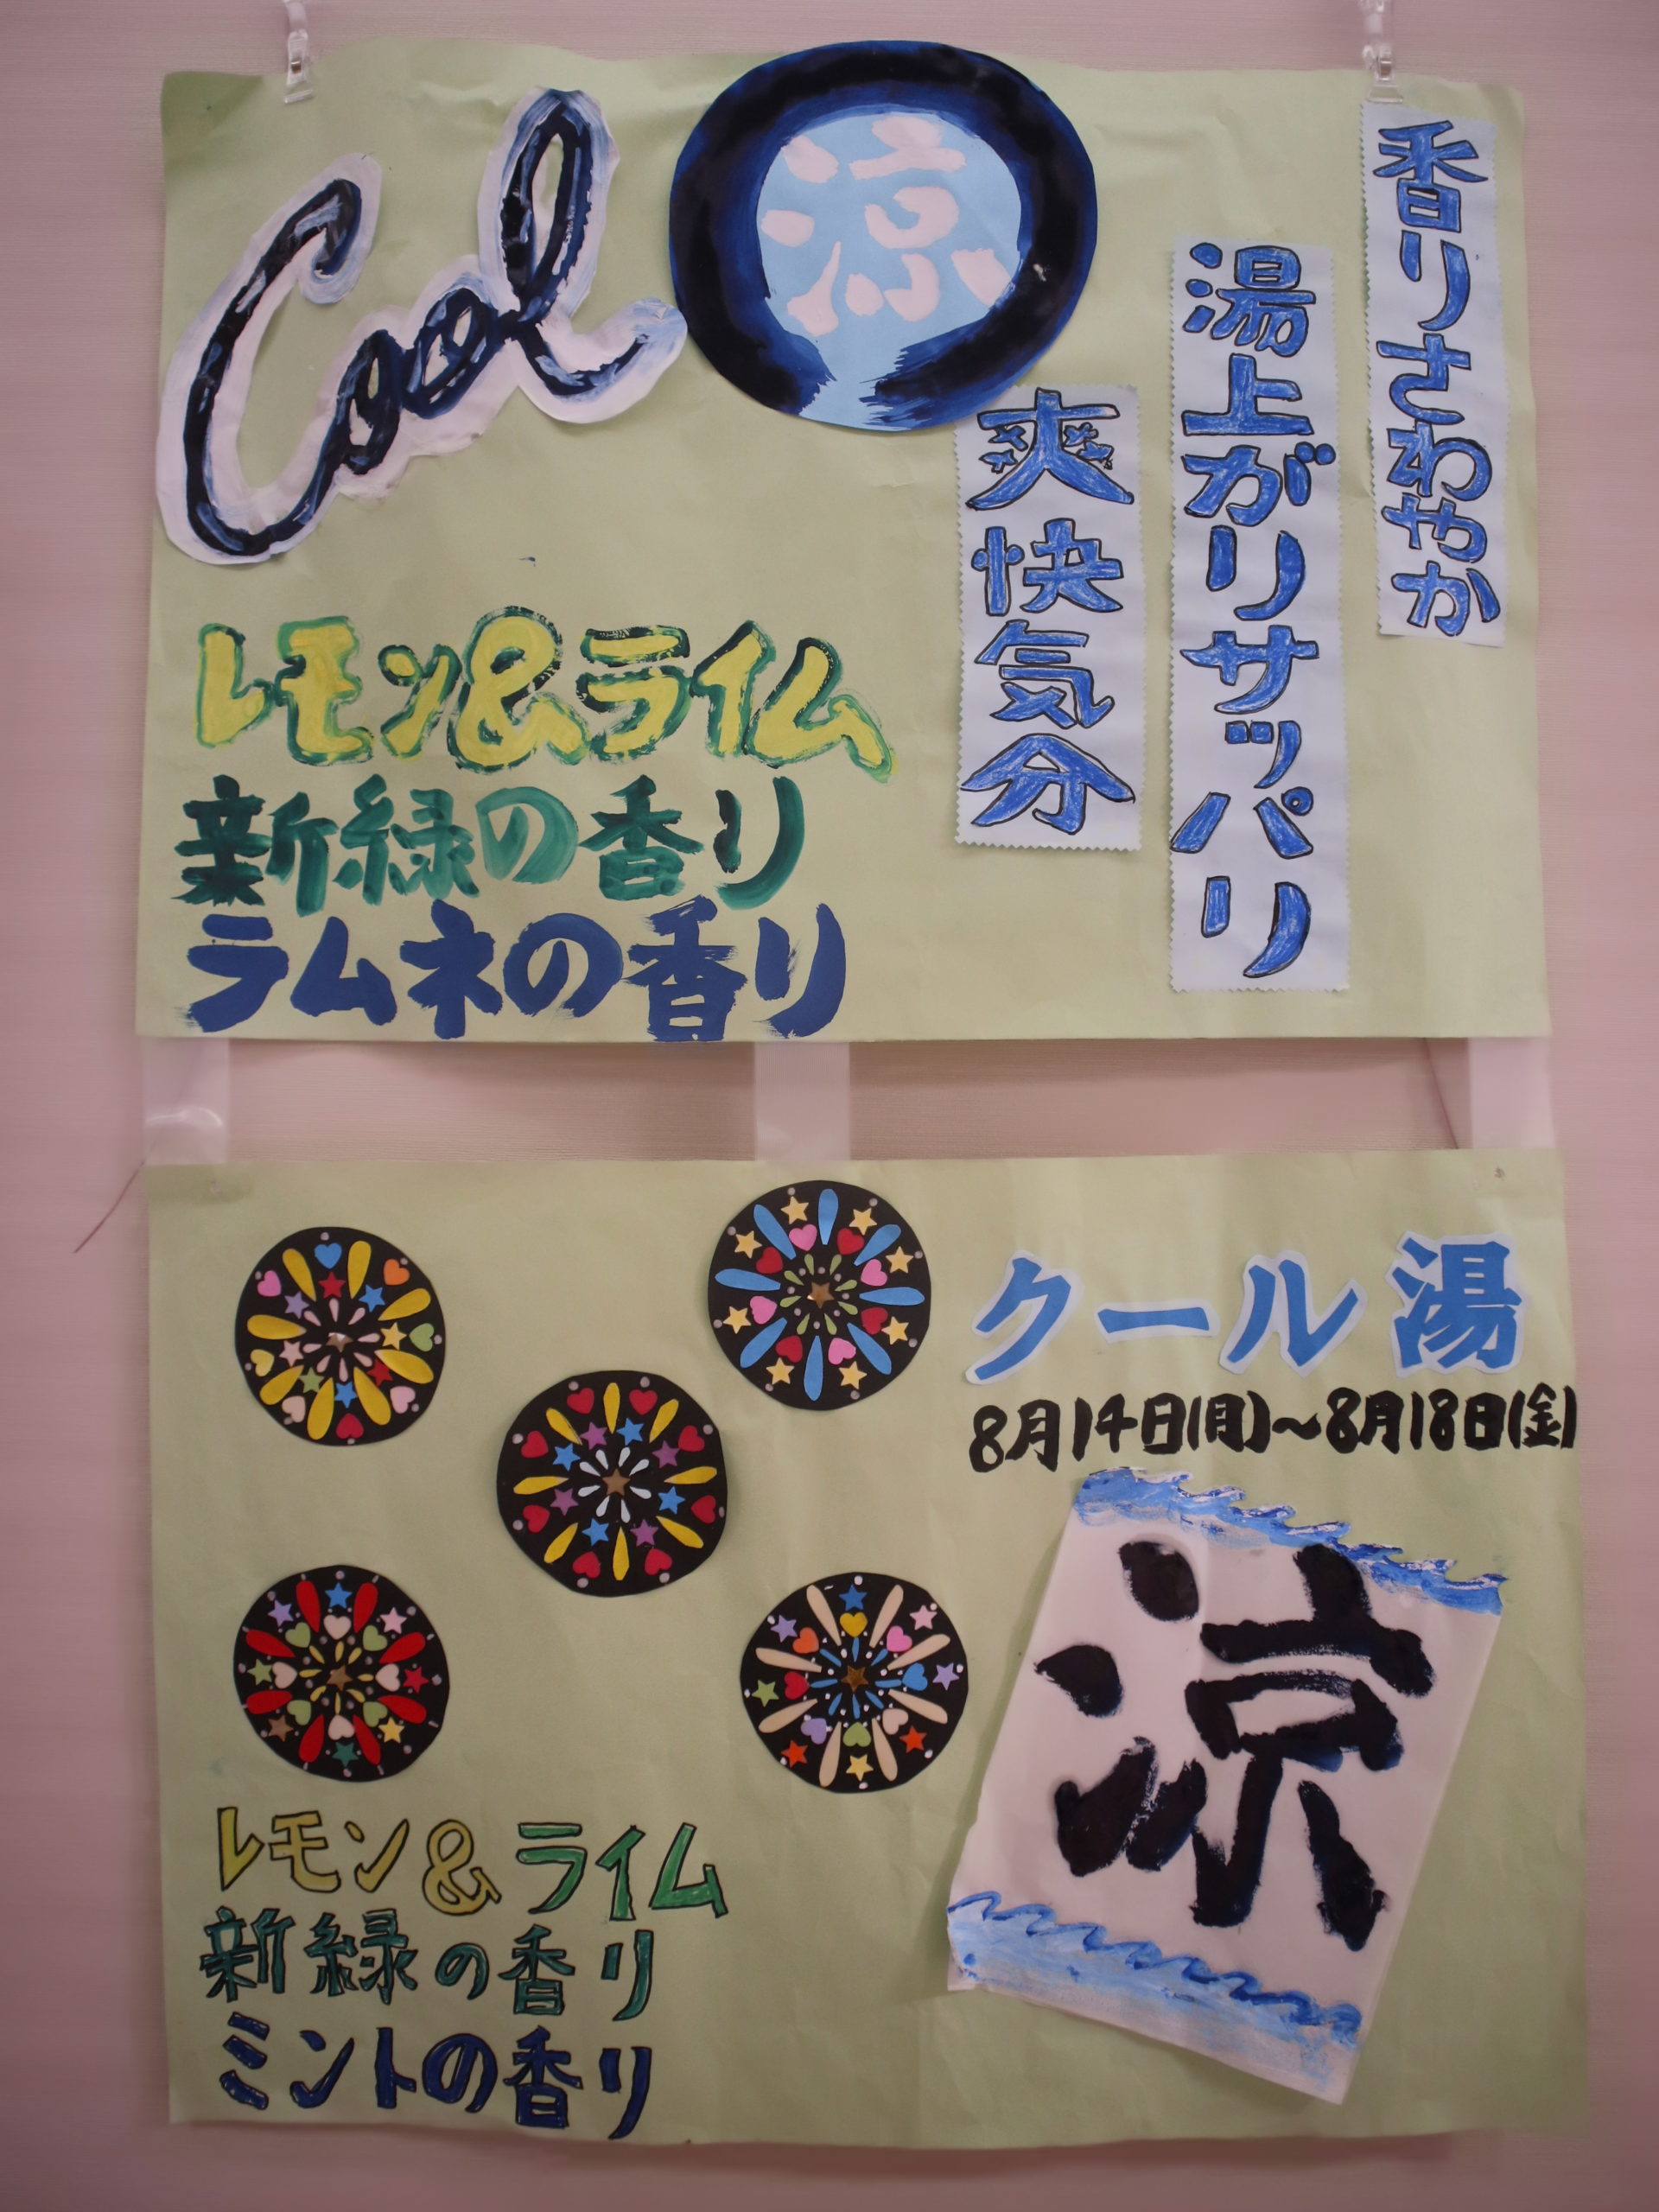 Cool
涼
香りさわやか
湯上がりサッパリ
爽快気分
レモン&ライム
新緑の香り
ラムネの香り
クール湯
8月14日(月)～8月18日(金)
涼
レモン&ライム
新緑の香り
ミントの香り